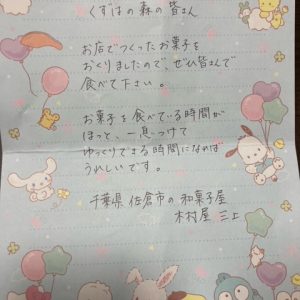 くずはの森の皆さん
お店でつくったお菓子を
おくりましたので、ぜひ皆さんで
食べて下さい。
お菓子を食べている時間が
ほっと、一息つけて
ゆっくりできる時間になれば
うれしいです。
千葉県佐倉市の和菓子屋
木村屋 三上